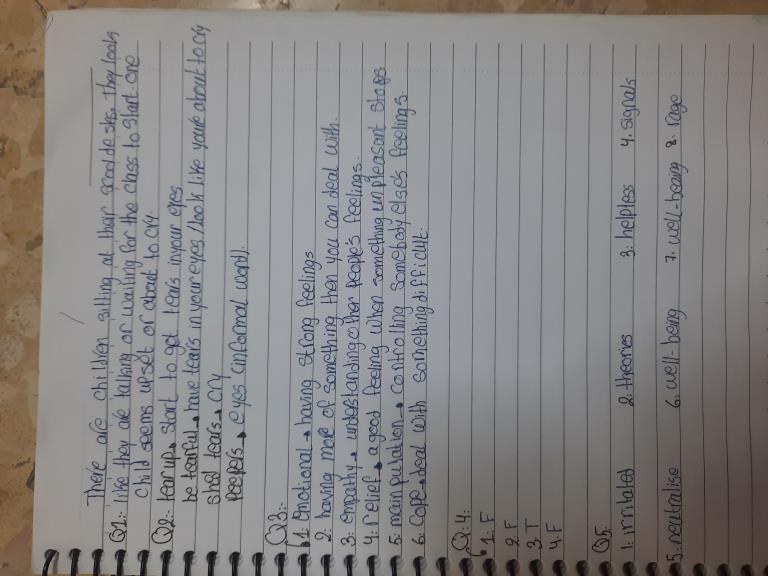 There are children sitting at their school desks, they look
Q1:- like they are talking or waiting for the class to start. one
child seems upset or about to cry.
Q2:- tear up → start to get tears in your eyes
be tearful → have tears in your eyes / look like you're about to cry
shed tears → cry
peepers → eyes (informal word).
Q3:-
1: Emotional → having strong feelings
2: having more of something then you can deal with.
3: empathy → understanding other people's feelings.
4: relief → a good feeling when something unpleasant stops
5: mainpulation → controlling somebody else's feelings.
6: Cope → deal with something difficult.
Q:4:
1: F
2: F
3: T
4: F
Q5:
1: irritated 2: theories 3: helpless 4. signals
5: neutralise 6. well-being 7. well-being 8. rage